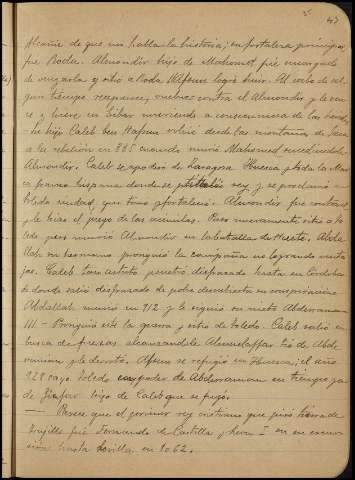 47
Alcañiz de que nos habla la historia; su fortaleza principal
fue Roda. Almondir hijo de Mahomet fué encargado
de vengarla y sitió a Roda Hafsun logró huir. Al cabo de al-
gun tiempo reaparece, vuelve contra el Almondir y le ven-
ce y hiere en Eibar muriendo a consecuencia de las heridas
Su hijo Caleb ben Hafsun volvió desde las montañas de Jaca
a la rebelión en 885 cuando murió Mahomed sucediendole
Almondir. Caleb se apodero de Zaragoza Huesca y toda la Mar
ca franco hispana donde se tituló rey y se proclamó en
toledo ciudad, que tomó y fortaleció. Almondir fue contra el
y le hizo el juego de las acemilas. Pero nuevamente sitió a to-
ledo pero murió Almondir en la batalla de Huete. Abda-
llah su hermano prosiguió la campaña no logrando venta
jas. Caleb con astucia penetró disfrazado hasta en Cordoba
de donde salió disfrazado de pobre descubierta su conspiración
Abdallah murió en 912 y le siguió su nieto Abderraman
III - Prosiguió este la guerra y sitio de toledo. Caleb salió en
busca de fuerzas alcanzandole Almudaffar tio de Abde-
rraman y le derrotó. Afsun se refugió en Huesca; el año
928 cayó Toledo en poder de Abderraman en tiempo ya
de Giafar hijo de Caleb que se fugó.
— Parece que el primer rey cristiano que pisó tierra de
Trujillo fue Fernando de Castilla y Leon I en su excur-
sión hasta Sevilla en 1062.